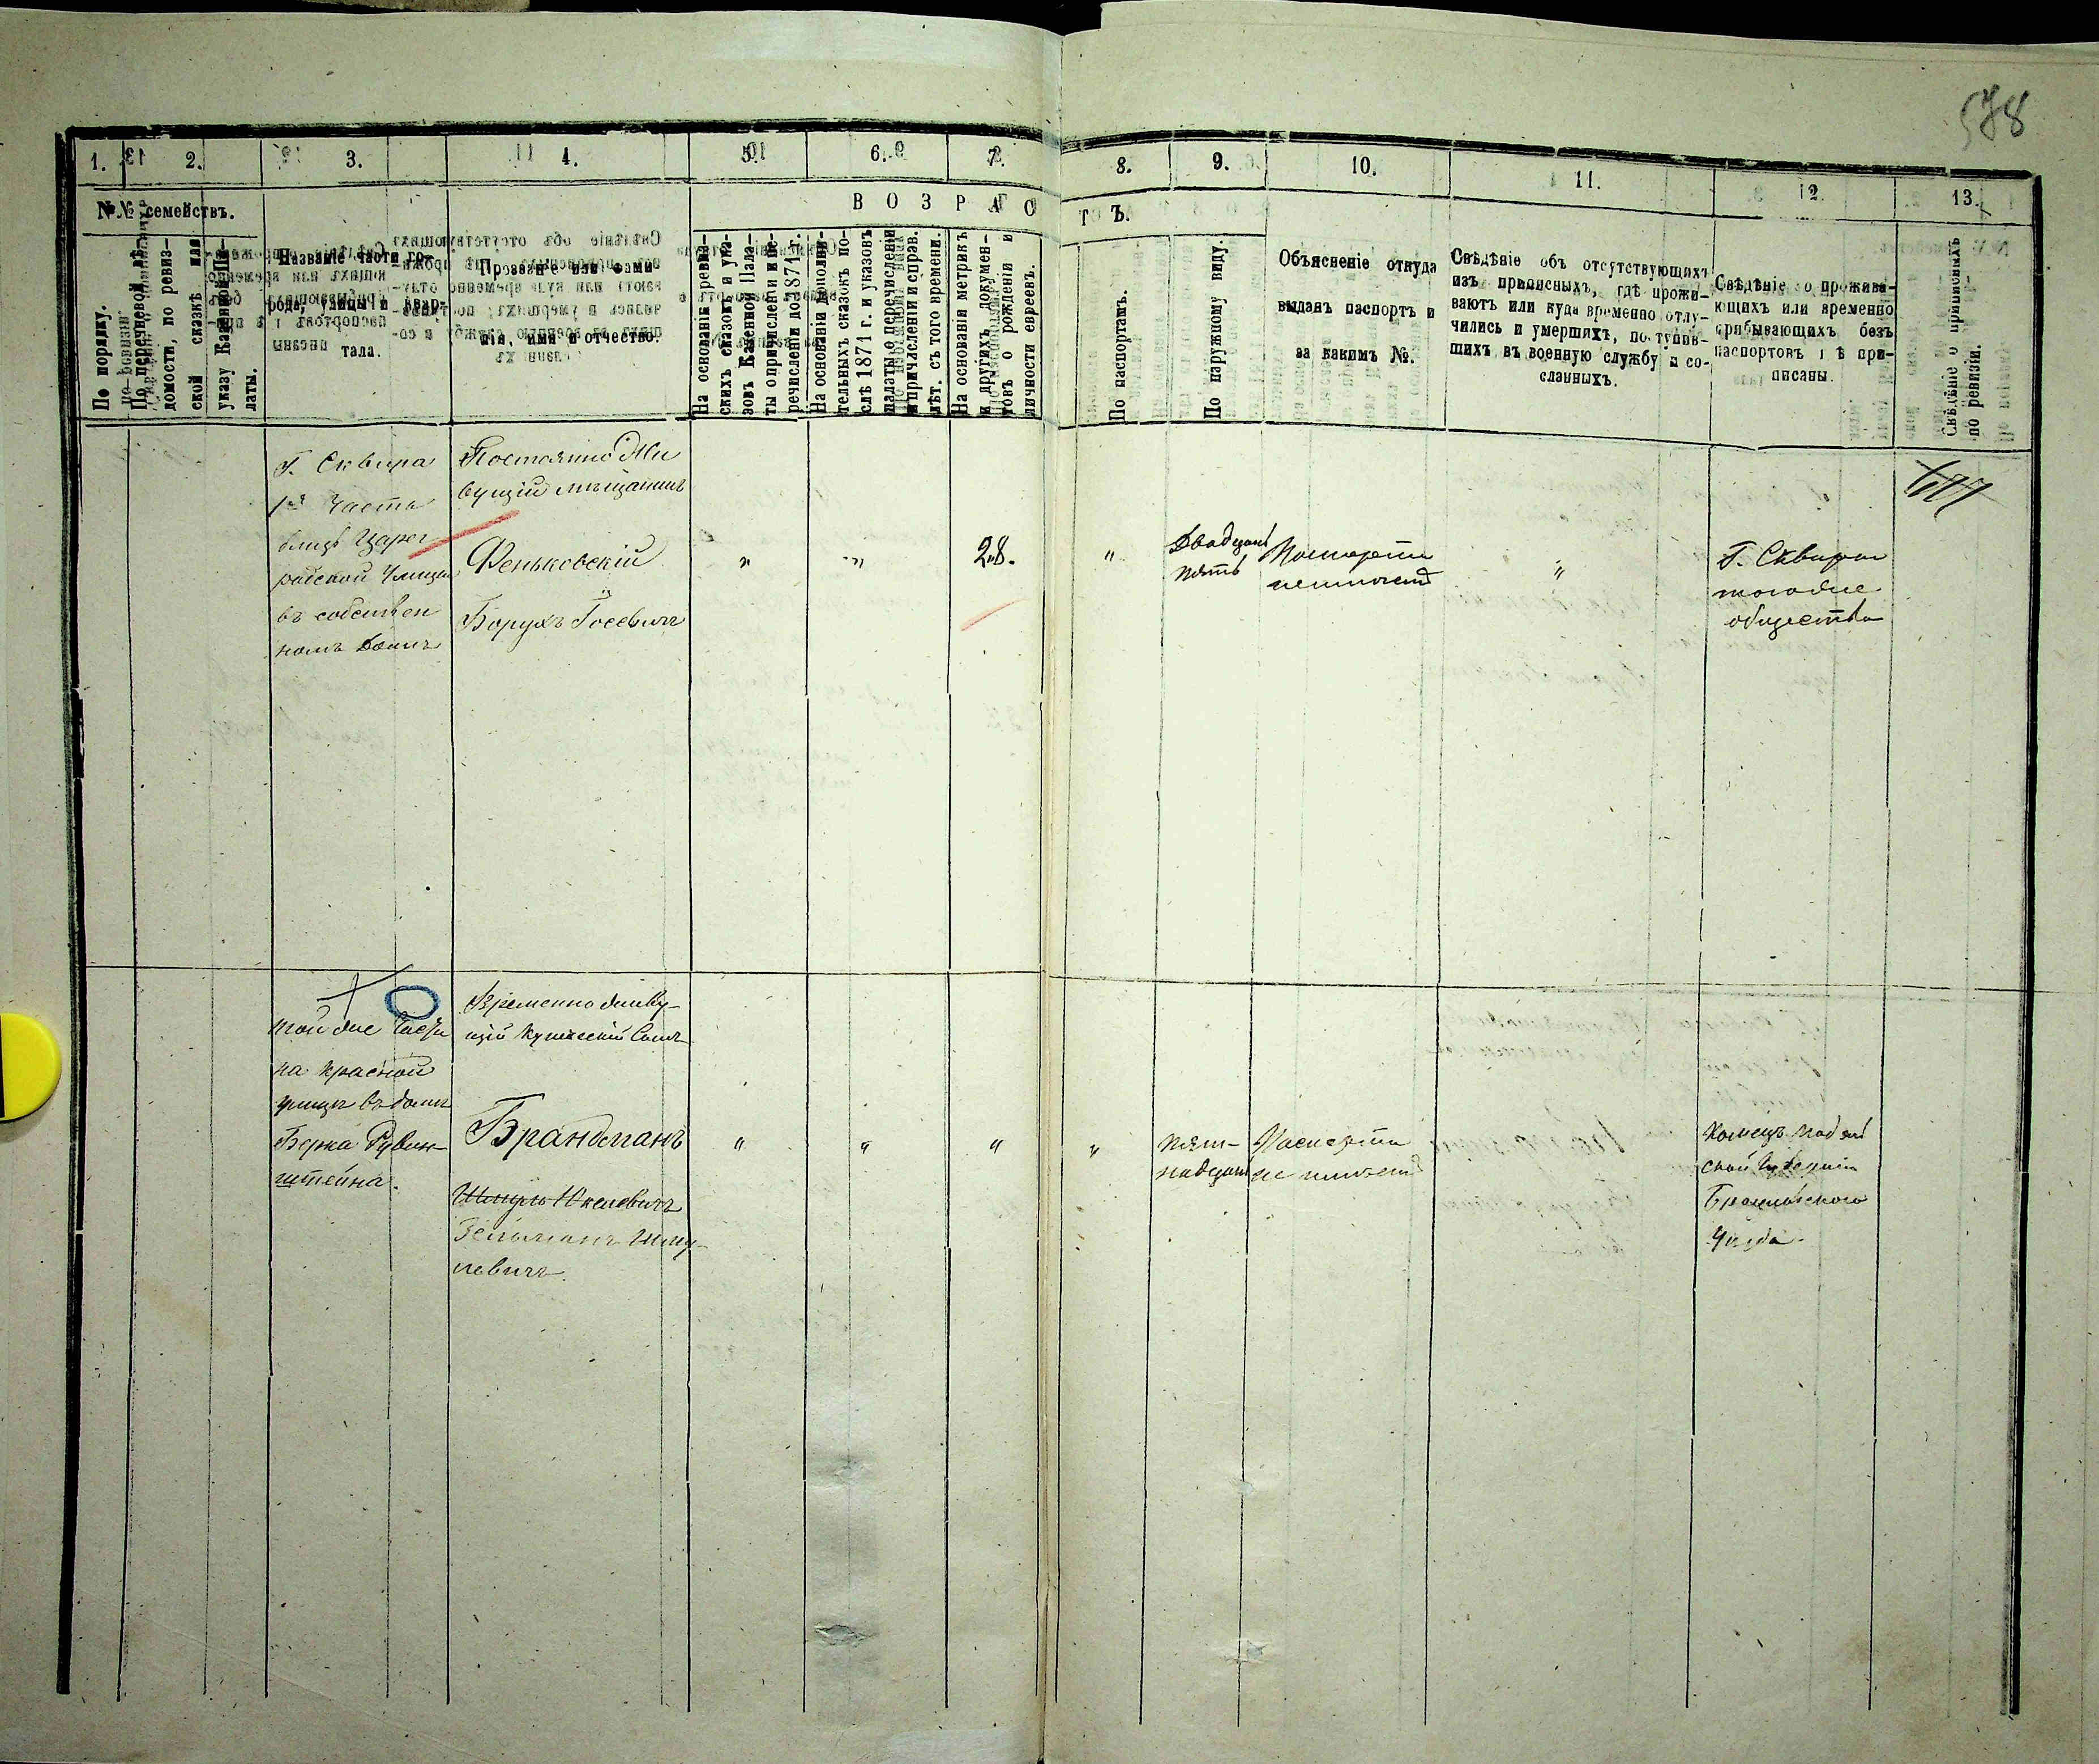 578
1. 2. 3. 4. 5. 6. 7. 8. 9. 10. 11. 12. 13.
№№ семействъ.
ВОЗРАСТЪ.
По порядку.
По перечневой вѣ-
домости, по ревиз-
ской сказкѣ или
указу Казенной Па-
латы.
Названіе части го-
рода, улицы и квар-
тала.
Прозваніе или фами-
лія, имя и отчество.
На основаніи ревиз-
скихъ сказокъ и ука-
зовъ Казенной Пала-
ты о причисленіи и пе-
речисленіи до 1871 г.
На основаніи дополни-
тельныхъ сказокъ по-
слѣ 1871 г. и указовъ
палаты о перечисленіи
и причисленіи и справ.
лѣт. съ того времени.
На основаніи метрикъ
и другихъ докумен-
товъ о рожденіи и
личности евреевъ.
По паспортамъ.
По наружному виду.
Объясненіе откуда
выданъ паспортъ и
за какимъ №.
Свѣдѣніе объ отсутствующихъ
изъ приписныхъ, гдѣ прожи-
ваютъ или куда временно отлу-
чились и умершихъ, поступив-
шихъ въ военную службу и со-
сланныхъ.
Свѣдѣніе о прожива-
ющихъ или временно
прибывающихъ безъ
паспортовъ гдѣ при-
писаны.
Свѣдѣніе о приписныхъ
по ревизіи.
Г. Сквира
1я Часть
близь Царег
радской Улицы
въ собствен
номъ домѣ
Постоянно Жи
вущій мѣщанинъ
Феньковскій
Борухъ Іосевичъ
"
"
28.
"
Двадцать
пять
Паспорта
неимѣетъ
"
Г. Сквира
того же
общества
той же Части
на Красной
улицѣ въ домѣ
Берка Рубин-
штейна.
Временно живу-
щій Купеческій Сынъ
Брандманъ
Шмуль Икелевичъ
Зельманъ Шму-
левичъ.
"
"
"
"
пят-
надцать
Паспорта
не имѣетъ
Подоль
ской Губерніи
Брацлавского
Уѣзда.